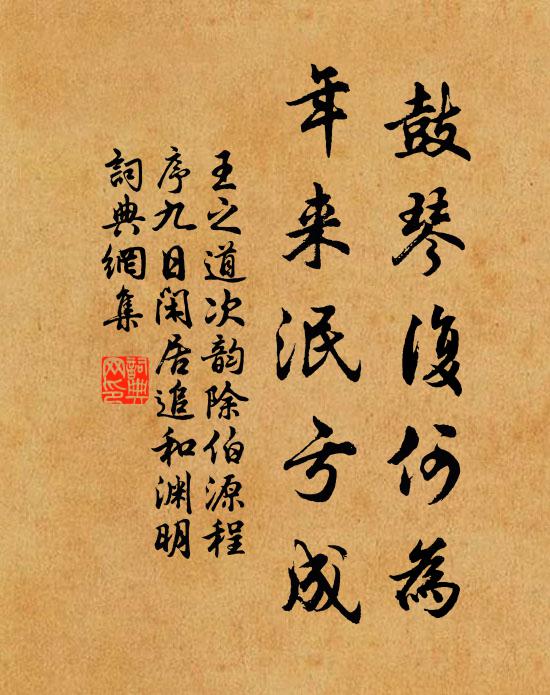 鼓琴復何為
年来泯亏成
王之道次韵除伯源程
序九日闲居追和渊明
詞典網集
詞典網印